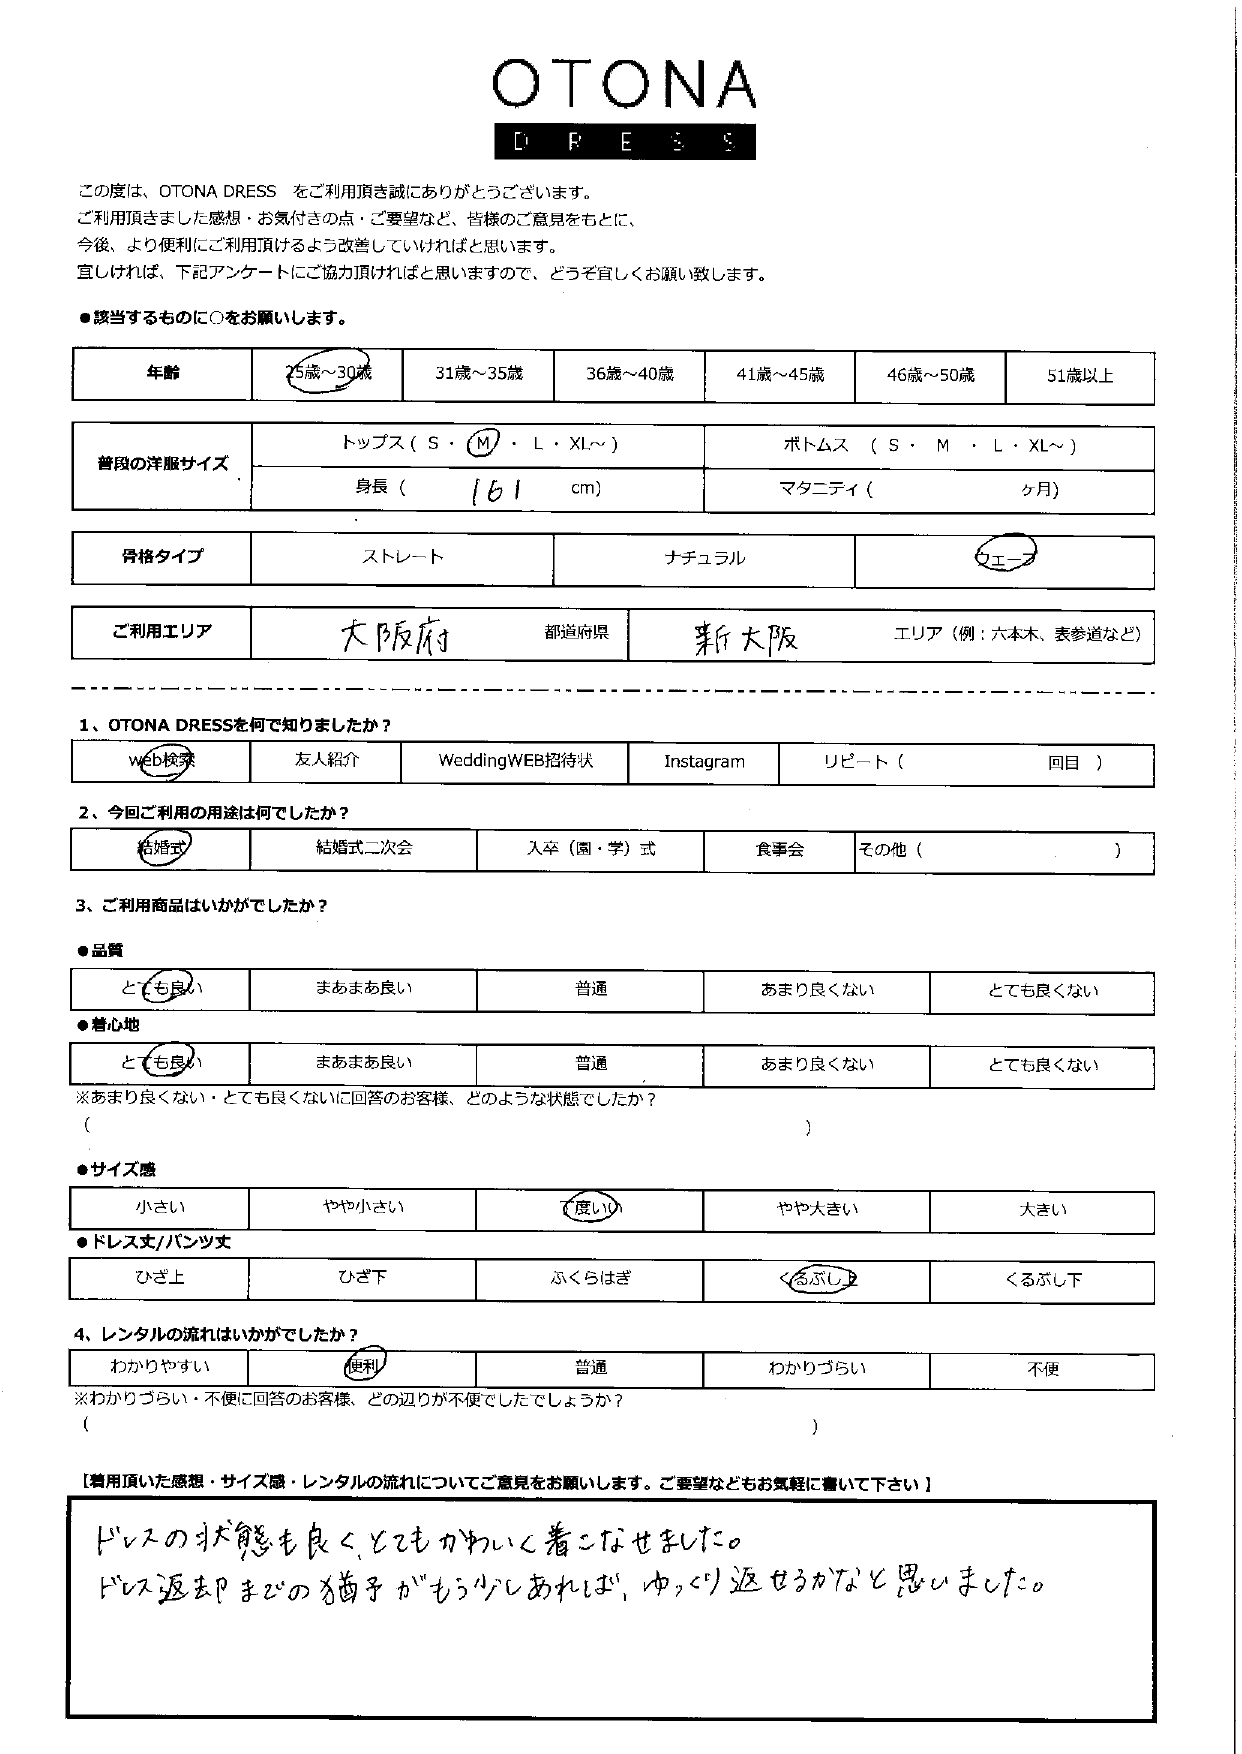 OTONA
DRESS
この度は、OTONA DRESS　をご利用頂き誠にありがとうございます。
ご利用頂きました感想・お気付きの点・ご要望など、皆様のご意見をもとに、
今後、より便利にご利用頂けるよう改善していければと思います。
宜しければ、下記アンケートにご協力頂ければと思いますので、どうぞ宜しくお願い致します。
●該当するものに○をお願いします。
年齢 25歳～30歳 31歳～35歳 36歳～40歳 41歳～45歳 46歳～50歳 51歳以上
普段の洋服サイズ トップス ( S ・ M ・ L ・ XL～ ) ボトムス ( S ・ M ・ L ・ XL～ )
身長 ( 161 cm) マタニティ ( ヶ月)
骨格タイプ ストレート ナチュラル ウェーブ
ご利用エリア 大阪府 都道府県 新大阪 エリア（例：六本木、表参道など）
1、OTONA DRESSを何で知りましたか？
web検索 友人紹介 WeddingWEB招待状 Instagram リピート（ 回目 ）
2、今回ご利用の用途は何でしたか？
結婚式 結婚式二次会 入卒（園・学）式 食事会 その他（ ）
3、ご利用商品はいかがでしたか？
●品質
とても良い まあまあ良い 普通 あまり良くない とても良くない
●着心地
とても良い まあまあ良い 普通 あまり良くない とても良くない
※あまり良くない・とても良くないに回答のお客様、どのような状態でしたか？
（ ）
●サイズ感
小さい やや小さい 丁度いい やや大きい 大きい
●ドレス丈/パンツ丈
ひざ上 ひざ下 ふくらはぎ くるぶし上 くるぶし下
4、レンタルの流れはいかがでしたか？
わかりやすい 便利 普通 わかりづらい 不便
※わかりづらい・不便に回答のお客様、どの辺りが不便でしたでしょうか？
（ ）
【着用頂いた感想・サイズ感・レンタルの流れについてご意見をお願いします。ご要望などもお気軽に書いて下さい】
ドレスの状態も良く、とてもかわいく着こなせました。
ドレス返却までの猶予がもう少しあれば、ゆっくり返せるかなと思いました。